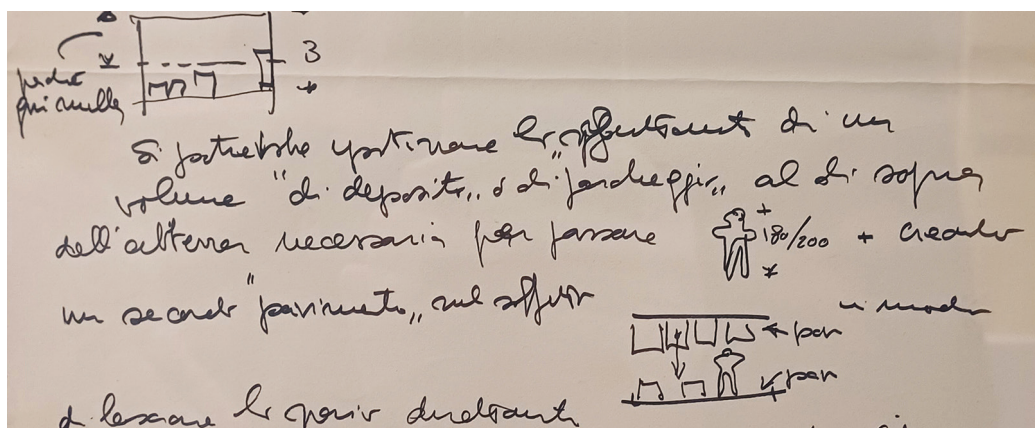 3
qui nulla
Si potrebbe ipotizzare lo "sfruttamento di un
volume "di deposito" o di "parcheggio" al di sopra
dell'altezza necessaria per passare 180/200 + creando
un secondo "pavimento" sul soffitto in modo
par
par
di lasciare lo spazio